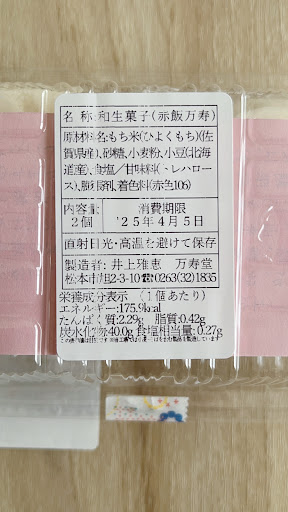 名 称:和生菓子(赤飯万寿)
原材料名:もち米(ひよくもち)(佐
賀県産)、砂糖、小麦粉、小豆(北海
道産)、食塩/甘味料(トレハロー
ス)、膨張剤、着色料(赤色106)
内容量
2個
消費期限
'25年4月5日
直射日光・高温を避けて保存
製造者:井上雅恵 万寿堂
松本市旭2-3-10☎0263(32)1835
栄養成分表示(1個あたり)
エネルギー:175.9kcal
たんぱく質:2.29g 脂質:0.42g
炭水化物:40.0g 食塩相当量:0.27g